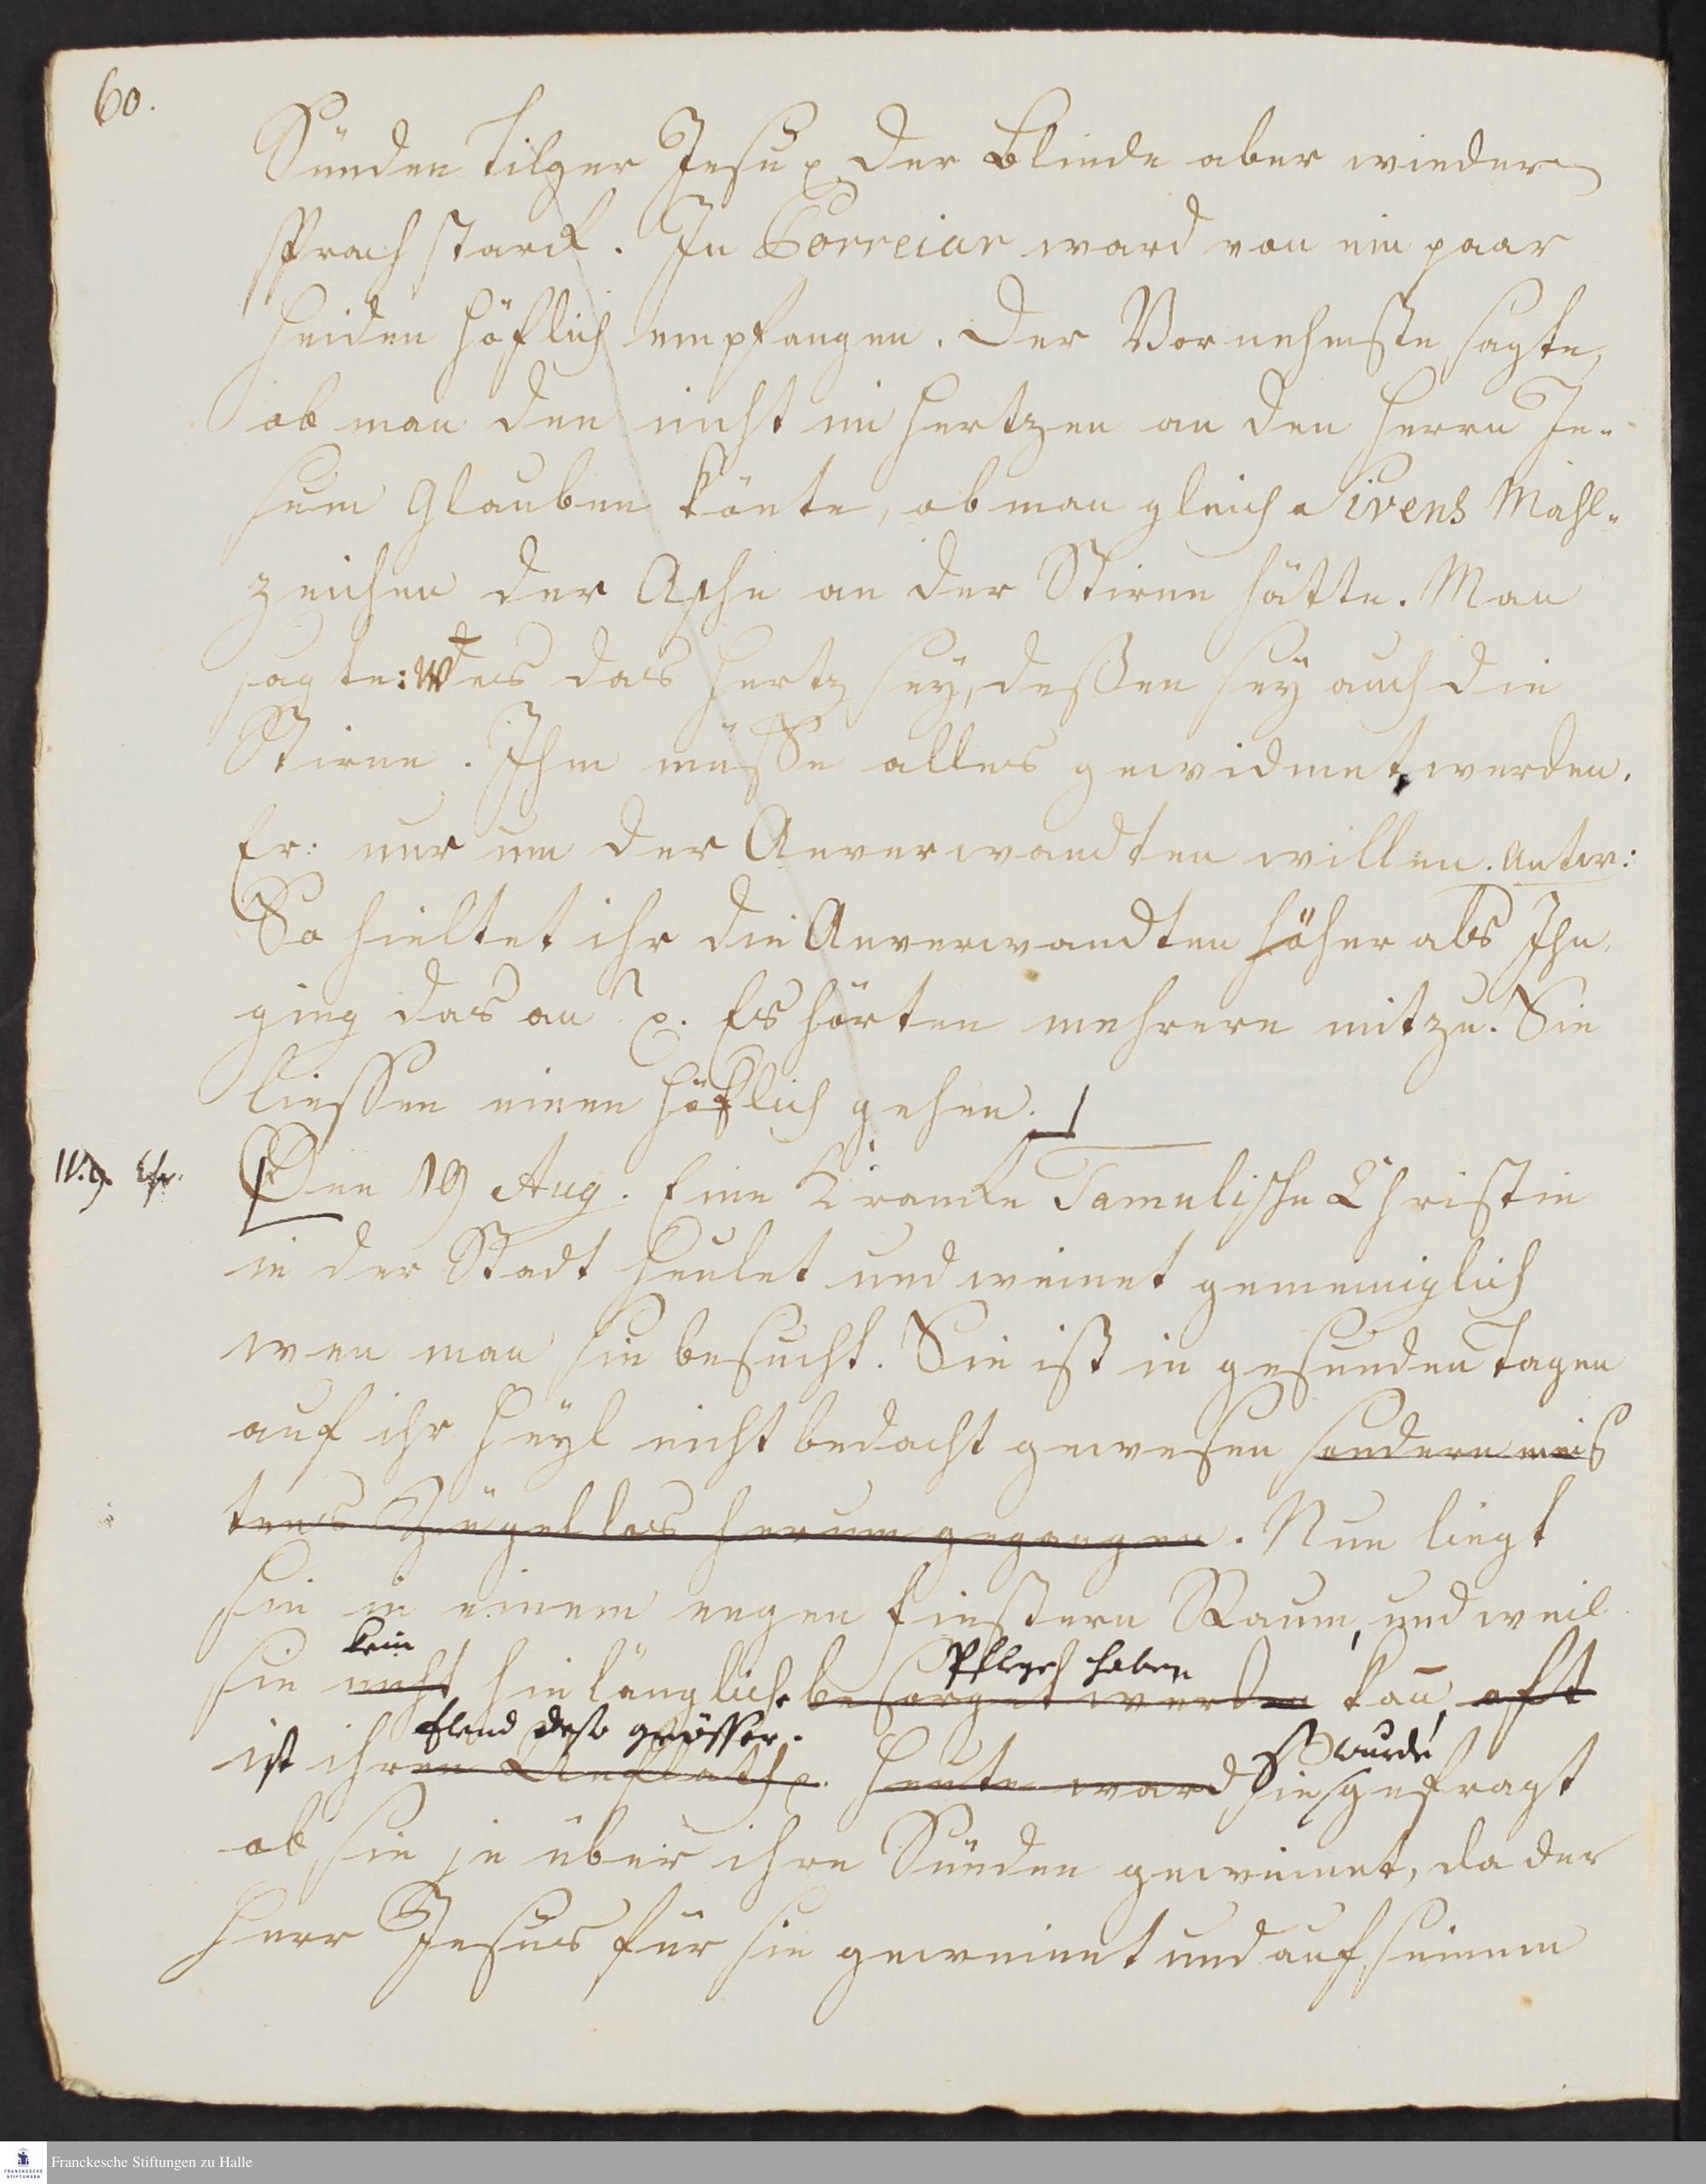 60.
Sünden Tilger Jesu p. Der Blinde aber wieder
sprach starck. In Porreiar ward von ein paar
Heiden höflich empfangen. Der Vornehmste sagte,
ob man den nicht im Hertzen an den Herrn Je-
sum Glauben könte, ob man gleich Sivens Mahl-
zeichen der Asche an der Stirne hätte. Man
sagte: Wes das Hertz sey, deßen sey auch die
Stirne. Ihm müsse alles gewidmet werden.
Er: nur um der Anverwandten willen. Antw:
So hieltet ihr die Anverwandten höher als Ihn,
ging das an? p. Es hörten mehrere mit zu. Sie
liessen einen höflich gehen.
Den 19 Aug. Eine Krancke Tamulische Christin
in der Stadt heulet und weinet gemeiniglich
wen man sie besucht. Sie ist in gesunden Tagen
auf ihr Heyl nicht bedacht gewesen sondern meis
tens Zügellos herum gegangen. Nun liegt
sie in einem engen finstern Raum, und weil
kein Pflege haben
sie nicht hinlängliche besorget werden kan̄, oft
Elend desto grösser. wurde
ist ihren Unflath p. Heute ward Sie gefragt
ob sie je über ihre Sünden geweinet, da der
Herr Jesus für sie geweinet und auf seinem
Franckesche Stiftungen zu Halle